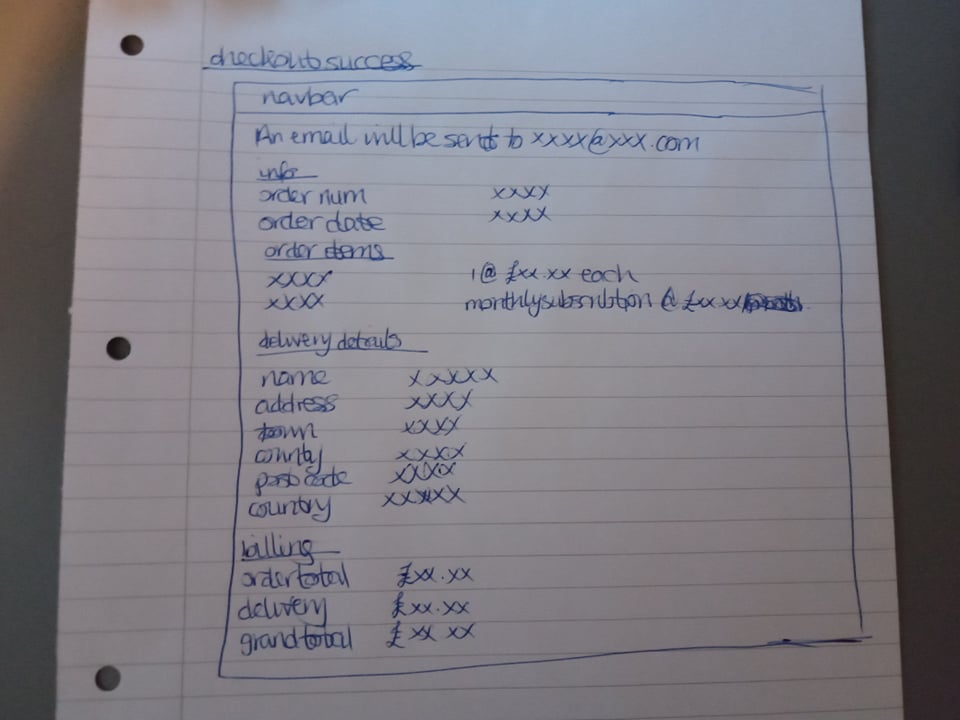 checkout success
navbar
An email will be sent to xxxx@xxx.com
info
order num xxxx
order date xxxx
order items
xxxx 1 @ £xx.xx each
xxxx monthly subscription @ £xx.xx
delivery details
name xxxxx
address xxxx
town xxxx
county xxxx
post code xxxx
country xxxxxx
billing
order total £xx.xx
delivery £xx.xx
grand total £xx xx